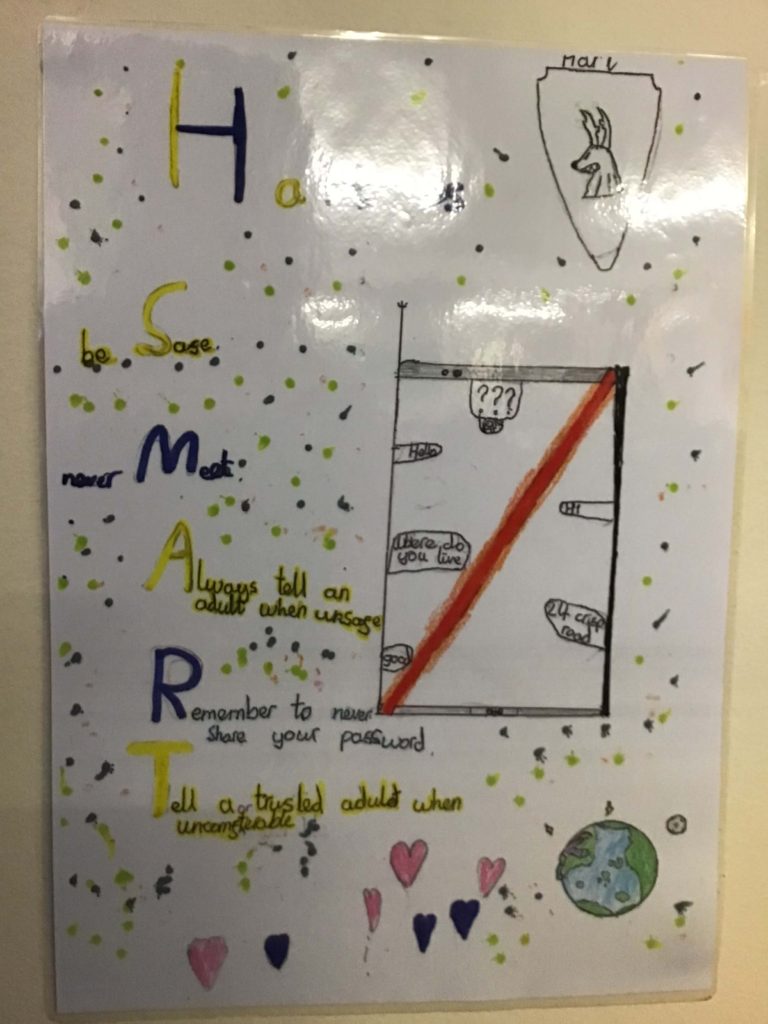 Ha
Hart
be Safe.
???
Hello
never Meet.
Hi
Where do
you live
Always tell an
adult when unsafe
24 crisp
good
Remember to never
share your password.
Tell a trusted adult when
uncomferable